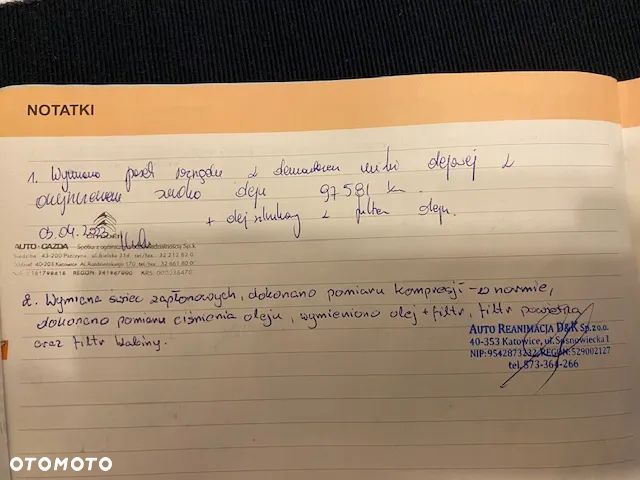 NOTATKI
1. Wymiano pasek rozrządu z demontażem miski olejowej z
czyszczeniem smoka oleju 97581 km.
+ olej silnikowy z filtrem oleju.
05.04.2022
CITROËN
AUTO-GAZDA Spółka z ograniczoną odpowiedzialnością Sp.k.
Siedziba: 43-200 Pszczyna, ul.Bielska 31d tel./fax. 32 212 82 0
Oddział: 40-203 Katowice, Al. Roździeńskiego 170, tel./fax. 32 661 80
REGON: KRS:
2. Wymiana świec zapłonowych, dokonano pomiaru kompresji - w normie,
dokonano pomiaru ciśnienia oleju, wymieniono olej + filtr, filtr powietrza
oraz filtr kabiny.
AUTO REANIMACJA D&K Sp. z o.o.
40-353 Katowice, ul. Sosnowiecka 1
NIP:9542873232 REGON:529002127
tel. 873-364-266
OTOMOTO